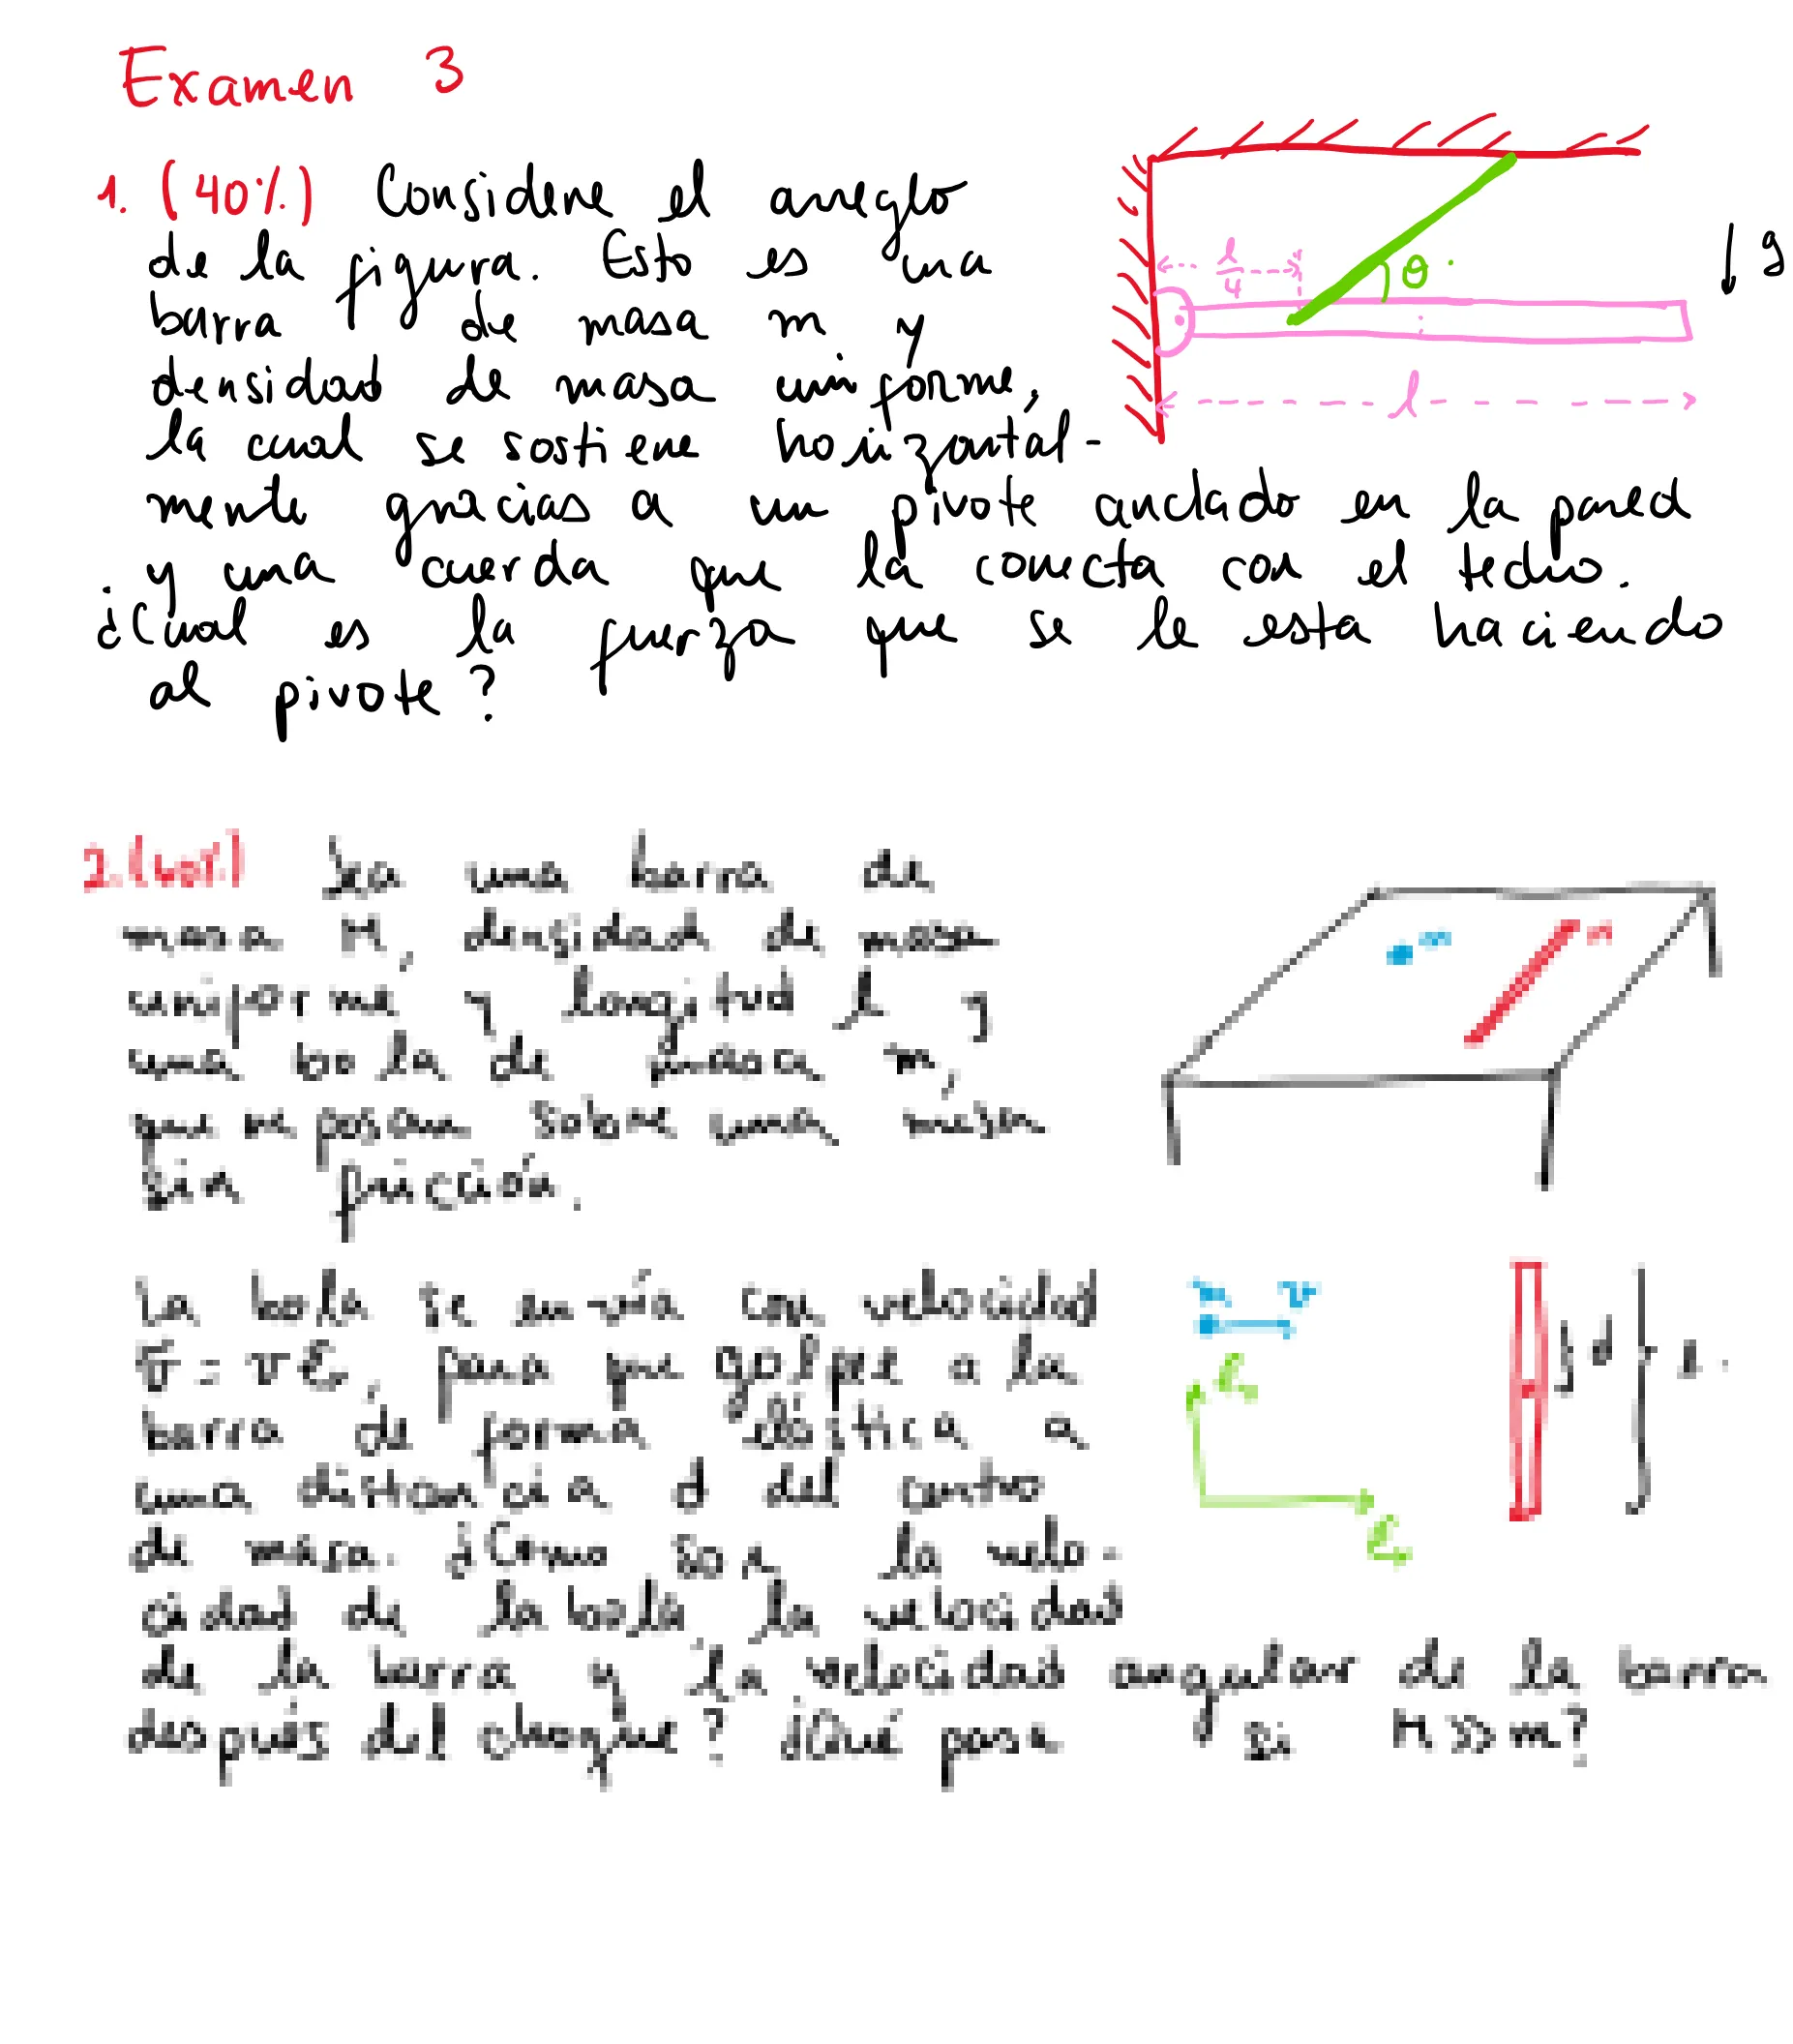 Examen 3
1. (40%) Considere el arreglo
de la figura. Esto es una
barra de masa m y
densidad de masa uniforme,
la cual se sostiene horizontal-
mente gracias a un pivote anclado en la pared
y una cuerda que la conecta con el techo.
¿Cual es la fuerza que se le esta haciendo
al pivote?
l/4
θ
g
l
2. (40%) Sea una barra de
masa M, densidad de masa
uniforme y longitud l y
una bola de masa m,
que reposan sobre una mesa
sin fricción.
m
La bola se envía con velocidad
para que golpee a la
barra de forma elástica a
una distancia d del centro
de masa. ¿Como son la velo-
cidad de la bola, la velocidad
de la barra y la velocidad angular de la barra
después del choque? ¿Qué pasa si M >> m?
m v
d
l